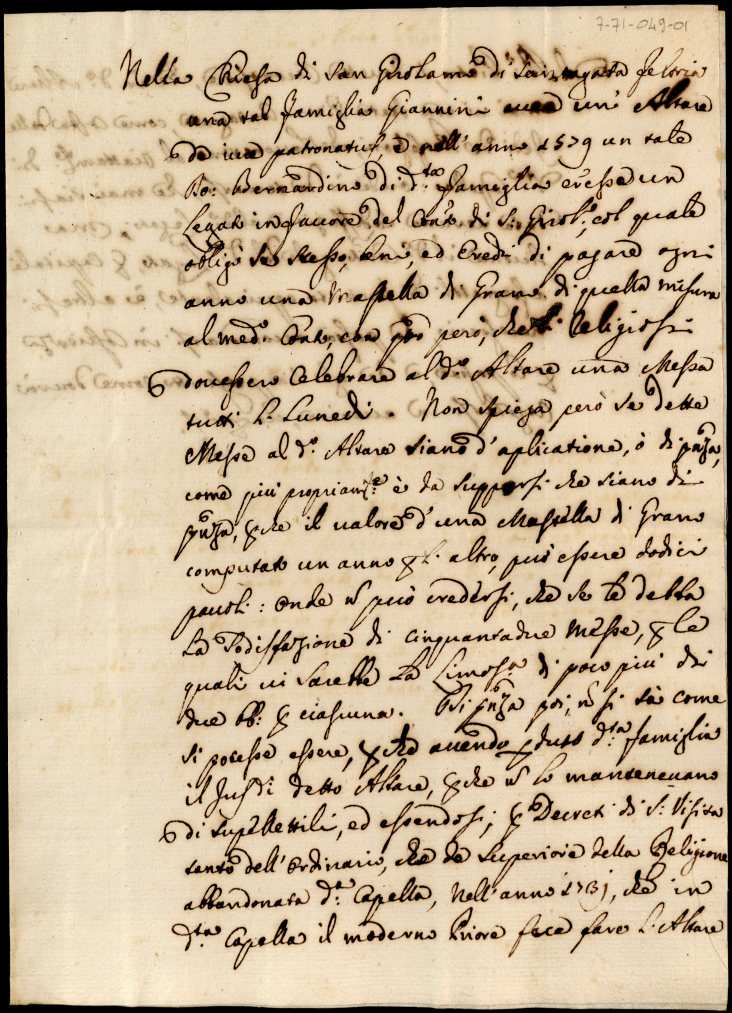 7-71-049-01
Nella Chiesa di San Girolamo di Sarragata Feltria
una tal famiglia Giannini avea un' Altare
de iure patronatus, e nell' anno 1579 un tale
Bernardino di d.ta famiglia eresse un
Legato in favore del Con.to di S. Girol.o, col quale
obligò se stesso, beni, ed Eredi di pagare ogni
anno una Mastella di Grano di quella misura
al med.o Con.to, con però, che i Religiosi
dovessero celebrare al d.o Altare una Messa
tutti L. Lunedi. Non spiega però se dette
Messe al d.o Altare siano d'aplicatione, ò di pnza,
come più propriam.te è da supporsi che siano di
pnza, pche il valore d'una Mastella di Grano
computato un anno p l. altro, può essere dodici
pauoli: onde n può credersi, che se le debba
La Sodisfazione di cinquantadue Messe, p le
quali vi sarebbe La Limosa di poco più di
due bb: p ciascuna. Di pnza poi, n si sà come
si potesse essere, pche avendo pduto d.ta famiglia
il Jus di detto Altare, pche n lo mantenevano
di supellettili, ed essendosi, p Decreti di S. Visita
tanto dell' Ordinario, che de Superiori della Religione
abbandonata d.ta Capella, Nell' anno 1731, che in
d.ta Capella il moderno Priore fece fare L. Altare